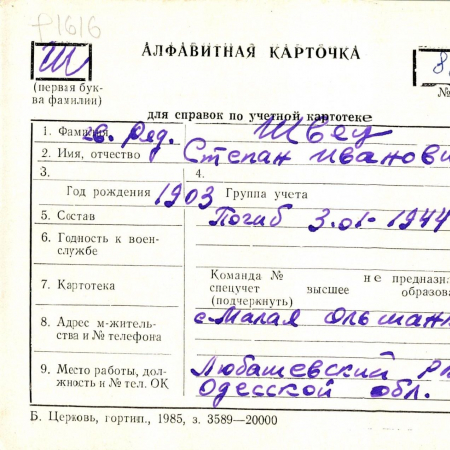 р1616
Ш
АЛФАВИТНАЯ КАРТОЧКА
8
(первая бук-
ва фамилии)
№
для справок по учетной картотеке
1. Фамилия гв. ряд. Швец
2. Имя, отчество Степан Иванови
3. 4.
Год рождения 1903 Группа учета
5. Состав Погиб 3.01-1944
6. Годность к воен-
службе
Команда № не предназн
7. Картотека спецучет высшее образова
(подчеркнуть)
8. Адрес м-житель-
ства и № телефона
с-Малая Ольшан
9. Место работы, дол-
жность и № тел. ОК
Любашевский р
Одесской обл.
Б. Церковь, гортип., 1985, з. 3589—20000